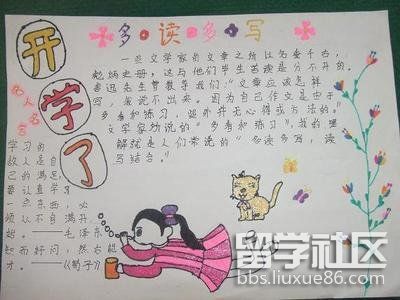 多读多写
开学了
名人名言
一些文学家的文章之所以名垂千古，
彪炳史册，这与他们毕生苦读是分不开的。
鲁迅先生曾教导我们：“文章应该怎样
写，我说不出来，因为自己作文是由于
多看和练习，此外并无心得或方法的。”
文学家劝说的“多看和练习”，我的理
解就是人们常说的“多读多写，读
写结合。”
学习的
敌人是自
己的满足，
要认真学习
一点东西，必
须从不自满开
始。——毛泽东
知而好问，然后能
才。——《荀子》
留学社区
bbs.liuxue86.com